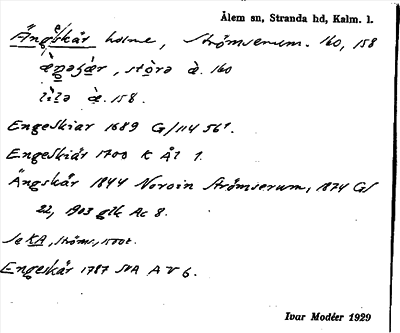 Ålem sn, Stranda hd, Kalm. l.
Ängeskär holme, Strömserum. 160, 158
storə œ. 160
lilə œ. 158.
Engeskiar 1689 G/114 56¹.
Engeskiär 1700 K Ål 1.
Ängskär 1844 Noroin Strömserum, 1874 GS
22, 1903 glk Ac 8.
Se KA, Ströms., 1500t.
Engeskär 1787 SVA A V 6.
Ivar Modéer 1929